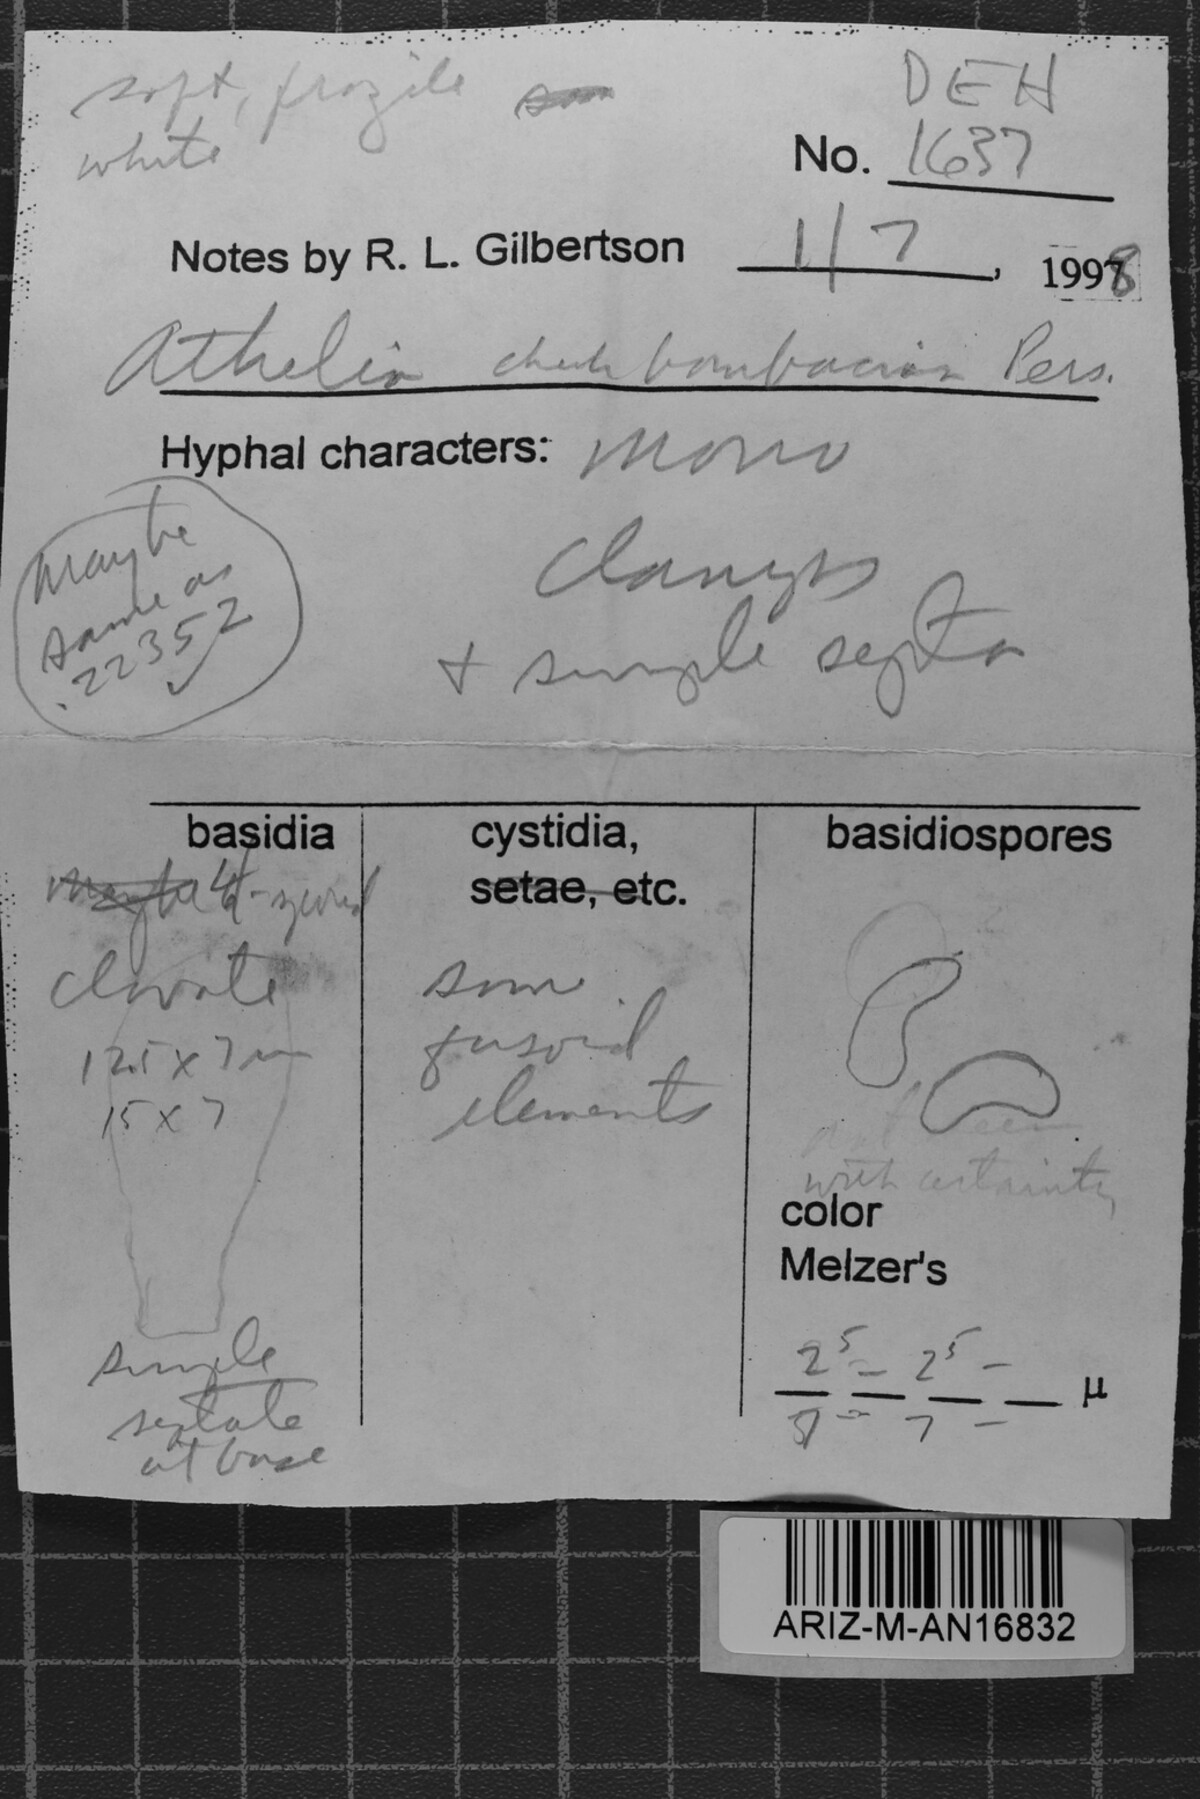 soft, fragile
white
DEH
No. 1637
Notes by R. L. Gilbertson 1/7, 1998
Athelia check bombacina Pers.
Hyphal characters: mono
clamps
+ simple septa
Maybe
same as
22352
basidia
4-spored
clavate
12.5 x 7 um
15 x 7
simple
septate
at base
cystidia,
setae, etc.
some
fusoid
elements
basidiospores
seen
with certainty
color
Melzer's
2 5 - 2 5 - μ
7 -
ARIZ-M-AN16832